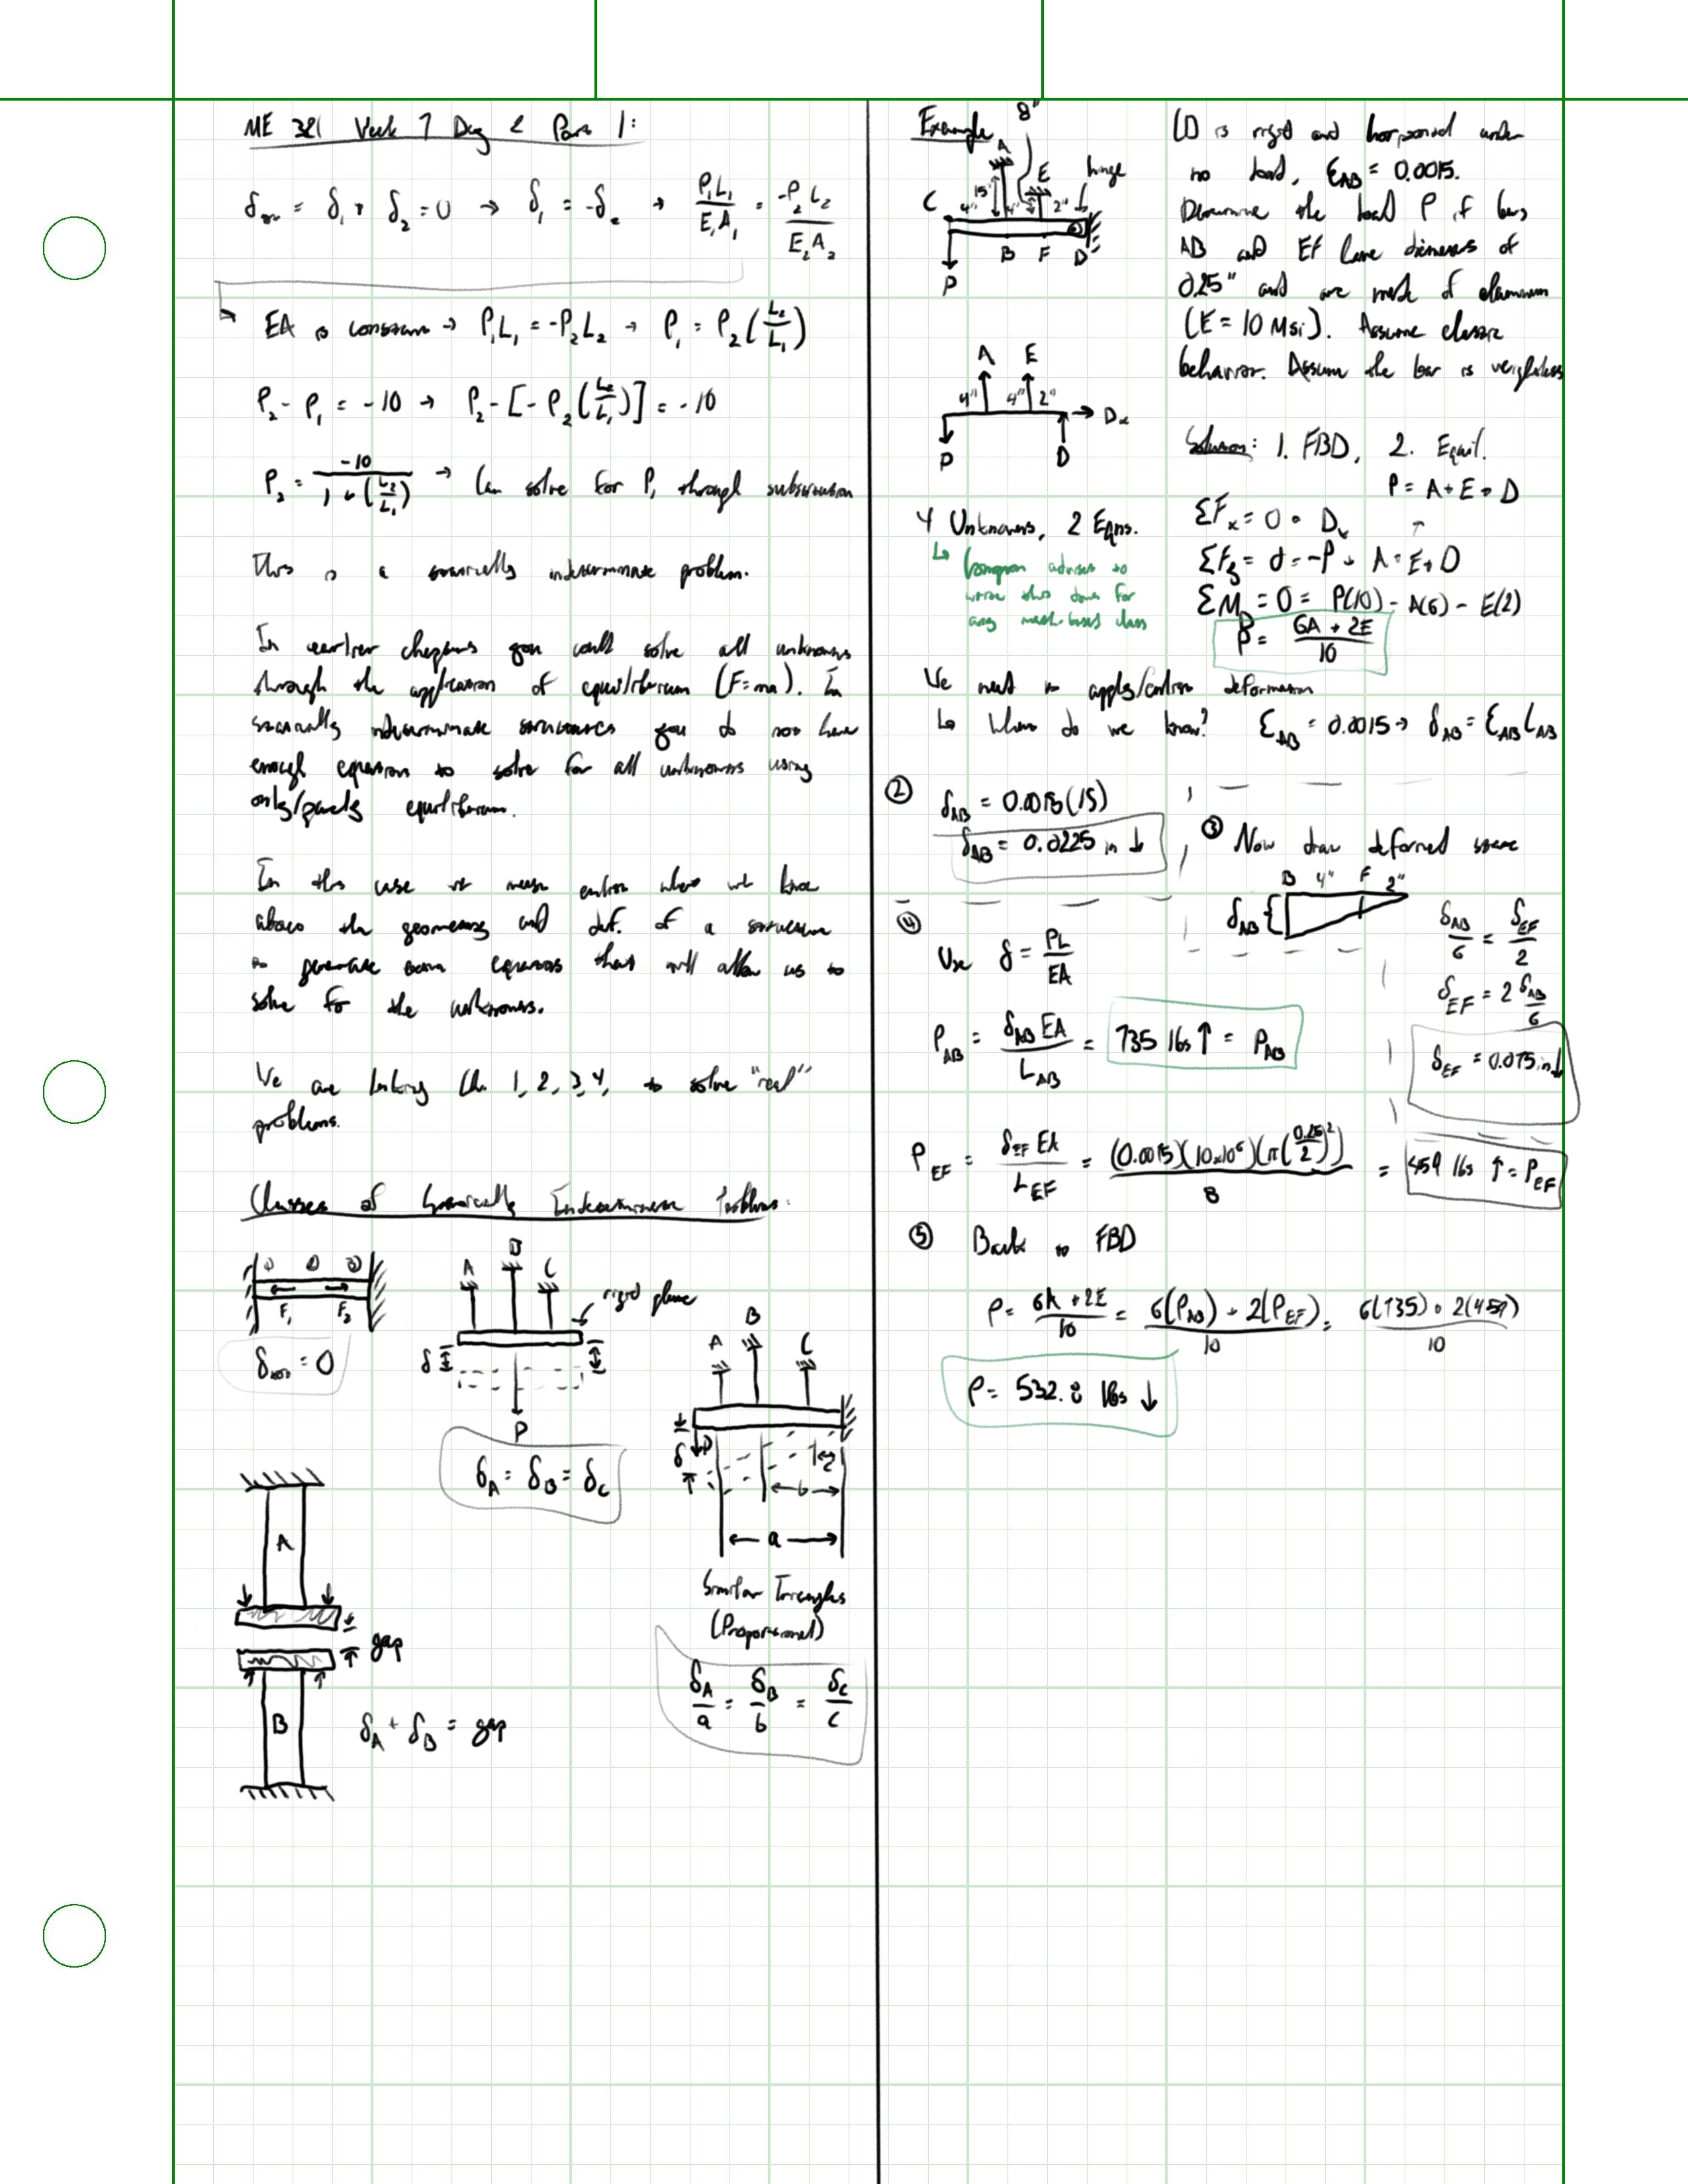 ME 321 Week 7 Day 2 Part 1:
δtot = δ₁ + δ₂ = 0 → δ₁ = -δ₂ → P₁L₁/E₁A₁ = -P₂L₂/E₂A₂
↳ EA is constant → P₁L₁ = -P₂L₂ → P₁ = P₂(L₂/L₁)
P₂ - P₁ = -10 → P₂ - [-P₂(L₂/L₁)] = -10
P₂ = -10/(1 + (L₂/L₁)) → Can solve for P₁ through substitution
This is a statically indeterminate problem.
In earlier chapters you could solve all unknowns
through the application of equilibrium (F=ma). In
statically indeterminate structures you do not have
enough equations to solve for all unknowns using
only/purely equilibrium.
In this case we must enforce what we know
about the geometry and def. of a structure
to generate extra equations that will allow us to
solve for the unknowns.
We are linking Ch. 1, 2, 3, 4, to solve "real"
problems.
Classes of Statically Indeterminate Problems:
① ② ③
F₁ F₂
δtot = 0
A B C
rigid plane
δ
P
δA = δB = δC
A B C
δ P
b
a
Similar Triangles
(Proportional)
δA/a = δB/b = δC/c
A
gap
B
δA + δB = gap
Example
8"
A E hinge
C 4" 15" 4" 2"
B F D
P
CD is rigid and horizontal under
no load, εAB = 0.0015.
Determine the load P if bars
AB and EF have diameters of
0.25" and are made of aluminum
(E = 10 Msi). Assume elastic
behavior. Assume the bar is weightless
A E
4" 4" 2" Dx
P D
Solution: 1. FBD, 2. Equil.
P = A + E + D
ΣFx = 0 = Dx
ΣFy = 0 = -P + A + E + D
ΣM = 0 = P(10) - A(6) - E(2)
P = (6A + 2E)/10
4 Unknowns, 2 Eqns.
↳ advises to
write this down for
any mech-based class
We need to apply/enforce deformation
↳ What do we know? εAB = 0.0015 → δAB = εAB LAB
② δAB = 0.0015(15)
δAB = 0.0225 in ↓
③ Now draw deformed state
B 4" F 2"
δAB
δAB/6 = δEF/2
δEF = 2 δAB/6
δEF = 0.075 in ↓
④
Use δ = PL/EA
PAB = δAB EA/LAB = 735 lbs ↑ = PAB
PEF = δEF EA/LEF = (0.0075)(10x10⁶)(π(0.25/2)²)/8 = 459 lbs ↑ = PEF
⑤ Back to FBD
P = (6A + 2E)/10 = (6(PAB) + 2(PEF))/10 = (6(735) + 2(459))/10
P = 532.8 lbs ↓